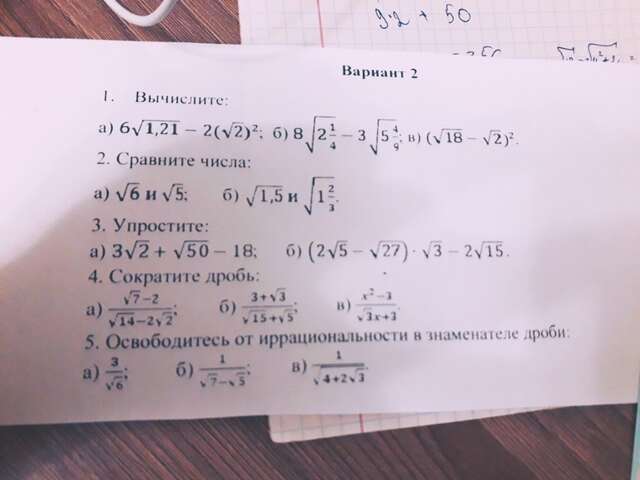 9·2 + 50
Вариант 2
1. Вычислите:
а) 6√1,21 − 2(√2)²; б) 8√(2 1/4) − 3√(5 4/9); в) (√18 − √2)².
2. Сравните числа:
а) √6 и √5; б) √1,5 и √(1 2/3).
3. Упростите:
а) 3√2 + √50 − 18; б) (2√5 − √27) · √3 − 2√15.
4. Сократите дробь:
а) (√7−2)/(√14−2√2); б) (3+√3)/(√15+√5); в) (x²−3)/(√3x+3).
5. Освободитесь от иррациональности в знаменателе дроби:
а) 3/√6; б) 1/(√7−√5); в) 1/√(4+2√3).